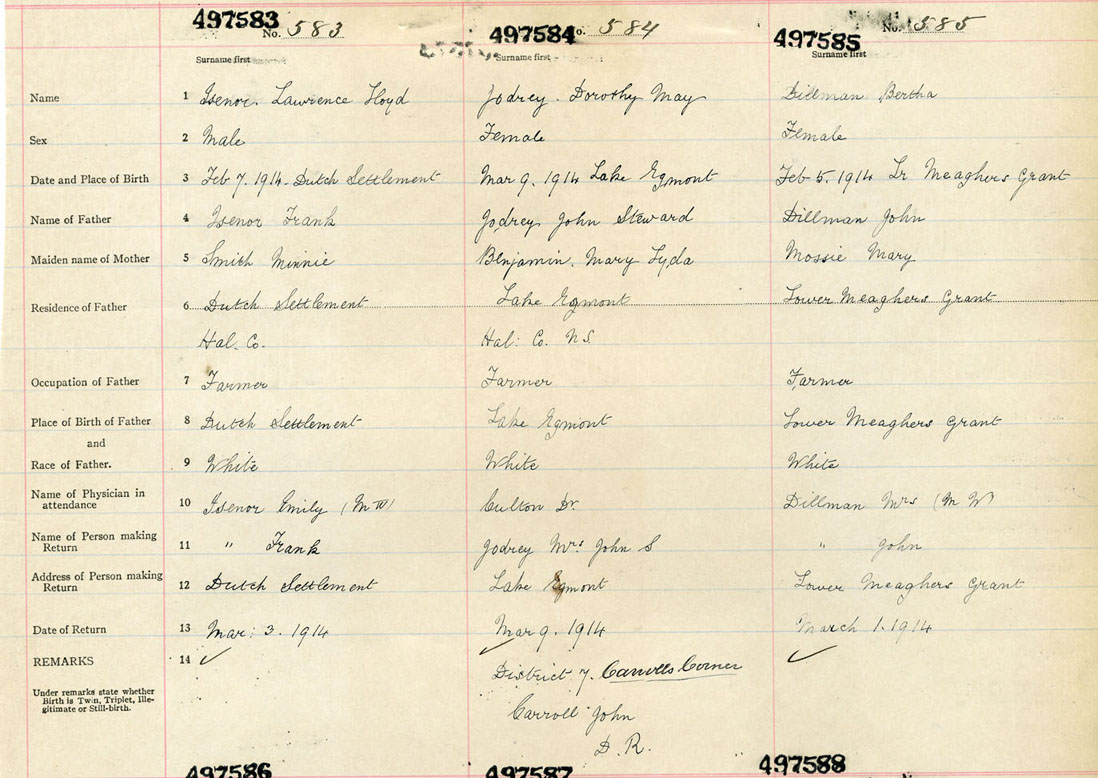 497583 No. 583 497584 o. 584 497585 No. 585
Surname first Surname first Surname first
Name 1 Isenor. Lawrence Lloyd Jodrey. Dorothy May Dillman Bertha
Sex 2 Male Female Female
Date and Place of Birth 3 Feb 7. 1914. Dutch Settlement Mar 9. 1914 Lake Egmont Feb 5. 1914 Lr Meaghers Grant
Name of Father 4 Isenor Frank Jodrey John Steward Dillman John
Maiden name of Mother 5 Smith Minnie Benjamin. Mary Lyda Mossie Mary
Residence of Father 6 Dutch Settlement Lake Egmont Lower Meaghers Grant
Hal. Co. Hal. Co. N.S.
Occupation of Father 7 Farmer Farmer Farmer
Place of Birth of Father 8 Dutch Settlement Lake Egmont Lower Meaghers Grant
and
Race of Father. 9 White White White
Name of Physician in
attendance 10 Isenor Emily (M W) Culton Dr. Dillman Mrs (M W)
Name of Person making
Return 11 " Frank Jodrey Mrs John S " John
Address of Person making
Return 12 Dutch Settlement Lake Egmont Lower Meaghers Grant
Date of Return 13 Mar: 3. 1914 Mar 9. 1914 March 1. 1914
REMARKS 14 ✓ ✓ ✓
District 7. Carrolls Corner
Under remarks state whether
Birth is Twin, Triplet, Ille-
gitimate or Still-birth.
Carroll John
D. R.
497586 497587 497588